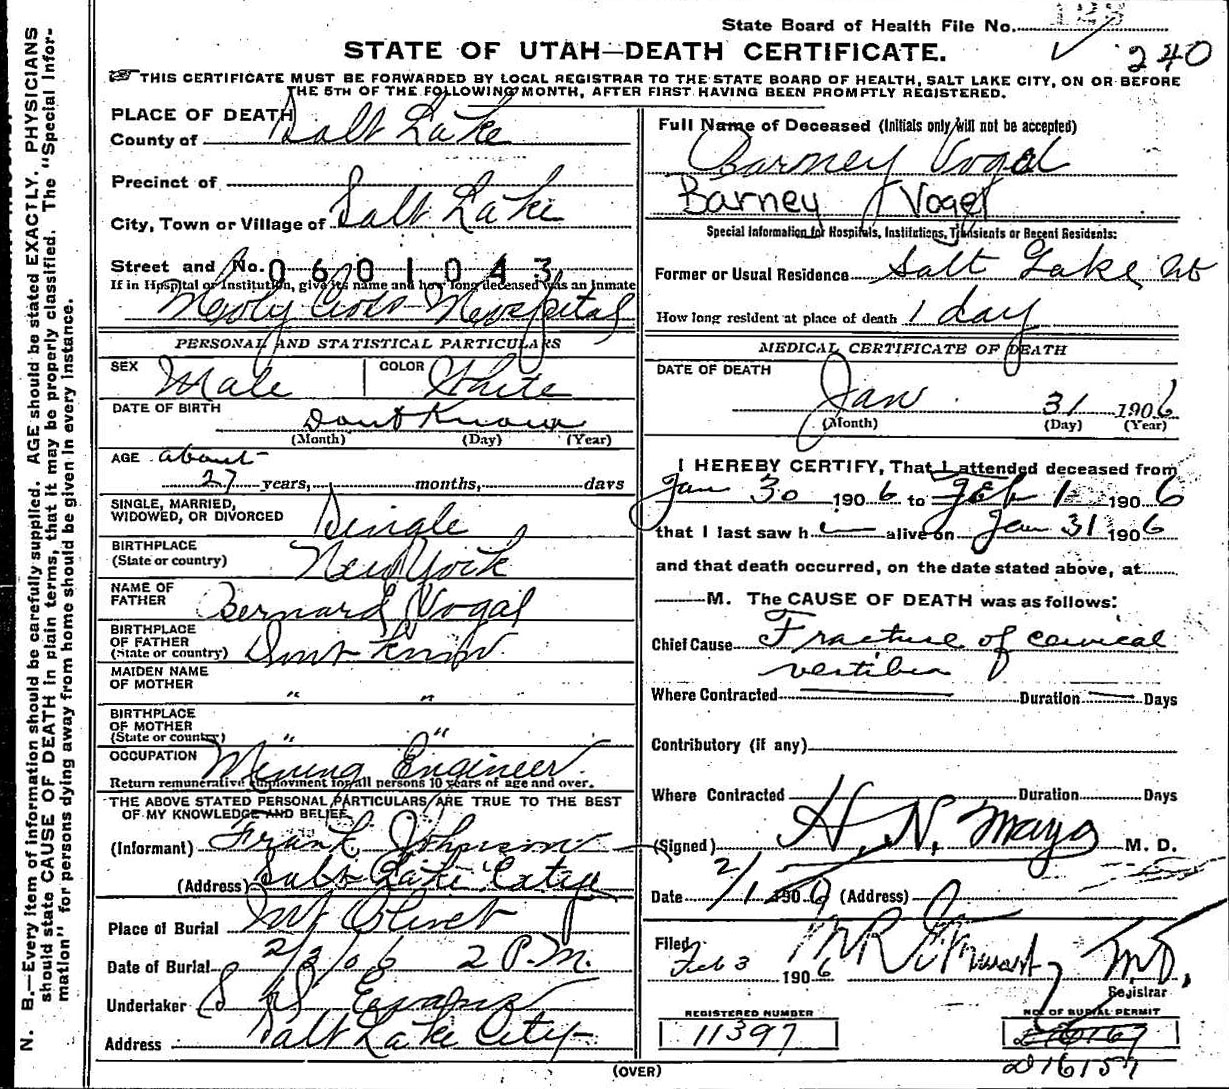 State Board of Health File No. 123
240
STATE OF UTAH—DEATH CERTIFICATE.
THIS CERTIFICATE MUST BE FORWARDED BY LOCAL REGISTRAR TO THE STATE BOARD OF HEALTH, SALT LAKE CITY, ON OR BEFORE
THE 5TH OF THE FOLLOWING MONTH, AFTER FIRST HAVING BEEN PROMPTLY REGISTERED.
PLACE OF DEATH
County of Salt Lake
Precinct of
City, Town or Village of Salt Lake
Street and No. 0601043
If in Hospital or Institution, give its name and how long deceased was an inmate
Holy Cross Hospital
PERSONAL AND STATISTICAL PARTICULARS
SEX Male COLOR White
DATE OF BIRTH Dont Know
(Month) (Day) (Year)
AGE about
27 years, months, days
SINGLE, MARRIED,
WIDOWED, OR DIVORCED Single
BIRTHPLACE
(State or country) New York
NAME OF
FATHER Bernard Vogal
BIRTHPLACE
OF FATHER
(State or country) Dont Know
MAIDEN NAME
OF MOTHER " "
BIRTHPLACE
OF MOTHER
(State or country) " "
OCCUPATION Mining Engineer
Return remunerative employment for all persons 10 years of age and over.
THE ABOVE STATED PERSONAL PARTICULARS ARE TRUE TO THE BEST
OF MY KNOWLEDGE AND BELIEF.
(Informant) Frank Johnson
(Address) Salt Lake City
Place of Burial Mt Olivet
Date of Burial 2/3/06 2 P.M.
Undertaker Evans
Address Salt Lake City
(OVER)
Full Name of Deceased (Initials only will not be accepted)
Barney Vogal
Barney Vogel
Special Information for Hospitals, Institutions, Transients or Recent Residents:
Former or Usual Residence Salt Lake
How long resident at place of death 1 day
MEDICAL CERTIFICATE OF DEATH
DATE OF DEATH
Jan 31 1906
(Month) (Day) (Year)
I HEREBY CERTIFY, That I attended deceased from
Jan 30 1906 to Feb 1 1906
that I last saw h alive on Jan 31 1906
and that death occurred, on the date stated above, at
M. The CAUSE OF DEATH was as follows:
Chief Cause Fracture of cervical
vertibra
Where Contracted Duration Days
Contributory (if any)
Where Contracted Duration Days
(Signed) H. N. Mayo M. D.
Date 2/1 1906 (Address)
Filed
Feb 3 1906 M R Stewart M.D.
Registrar
REGISTERED NUMBER
11397
NO. OF BURIAL PERMIT
D16167
D16157
N. B.—Every item of information should be carefully supplied. AGE should be stated EXACTLY. PHYSICIANS
should state CAUSE OF DEATH in plain terms, that it may be properly classified. The "Special Infor-
mation" for persons dying away from home should be given in every instance.